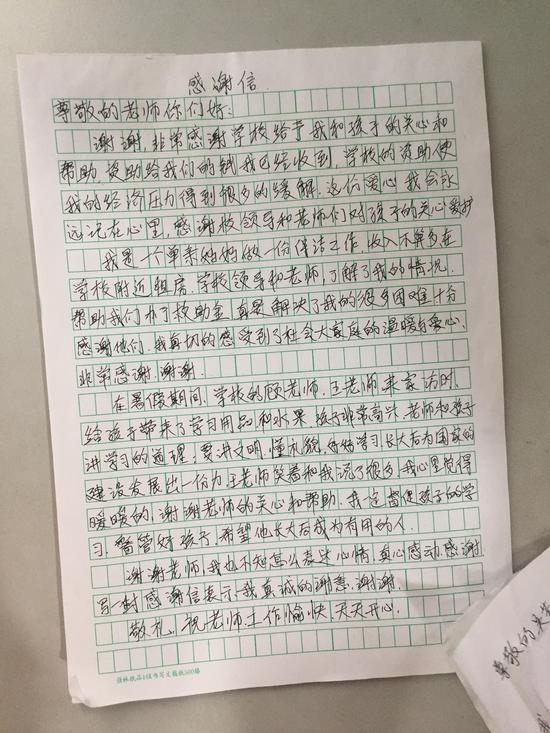 感谢信
尊敬的老师你们好:
谢谢,非常感谢学校给予我和孩子的关心和
帮助,资助给我们的钱我已经收到,学校的资助使
我的经济压力得到很多的缓解,这份爱心我会永
远记在心里,感谢校领导和老师们对孩子的关心爱护
我是一个单亲妈妈做一份保洁工作,收入不算多在
学校附近租房,学校领导和老师,了解了我的情况,
帮助我们办了救助金,真是解决了我的很多困难十分
感谢他们,我真切的感受到了社会大家庭的温暖与爱心、
非常感谢,谢谢.
在暑假期间,学校的顾老师,王老师来家访时,
给孩子带来了学习用品和水果,孩子非常高兴,老师和孩子
讲学习的道理,要讲文明,懂礼貌,好好学习,长大后为国家的
建设发展出一份力,王老师笑着和我说了很多,我心里觉得
暖暖的,谢谢老师的关心和帮助,我一定督促孩子的学
习,管好孩子,希望他长大后成为有用的人.
谢谢老师,我也不知怎么表达心情,真心感动,感谢
写封感谢信表示我真诚的谢意,谢谢.
敬礼,祝老师工作愉快,天天开心.
尊敬的
我